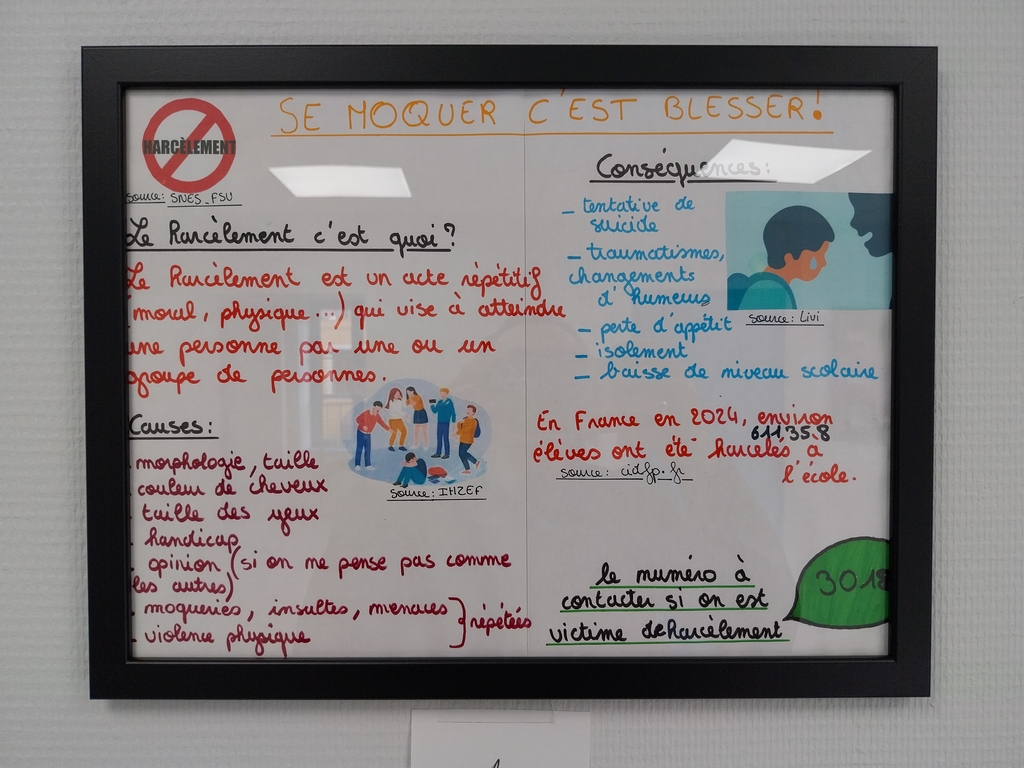 SE MOQUER C'EST BLESSER!
HARCÈLEMENT
source: SNES_FSU
Le Harcèlement c'est quoi?
Le Harcèlement est un acte répétitif
(moral, physique...) qui vise à atteindre
une personne par une ou un
groupe de personnes.
Causes:
. morphologie, taille
. couleur de cheveux
. taille des yeux
. handicap
. opinion (si on ne pense pas comme
les autres)
. moqueries, insultes, menaces } répétées
. violence physique
Source: IH2EF
Conséquences:
_ tentative de
suicide
_ traumatismes,
changements
d'humeurs
_ perte d'appétit
_ isolement
_ baisse de niveau scolaire
source: Livi
En France en 2024, environ
611 358
élèves ont été harcelés à
l'école.
source: cidfp.fr
le numéro à
contacter si on est
victime de harcèlement
3018